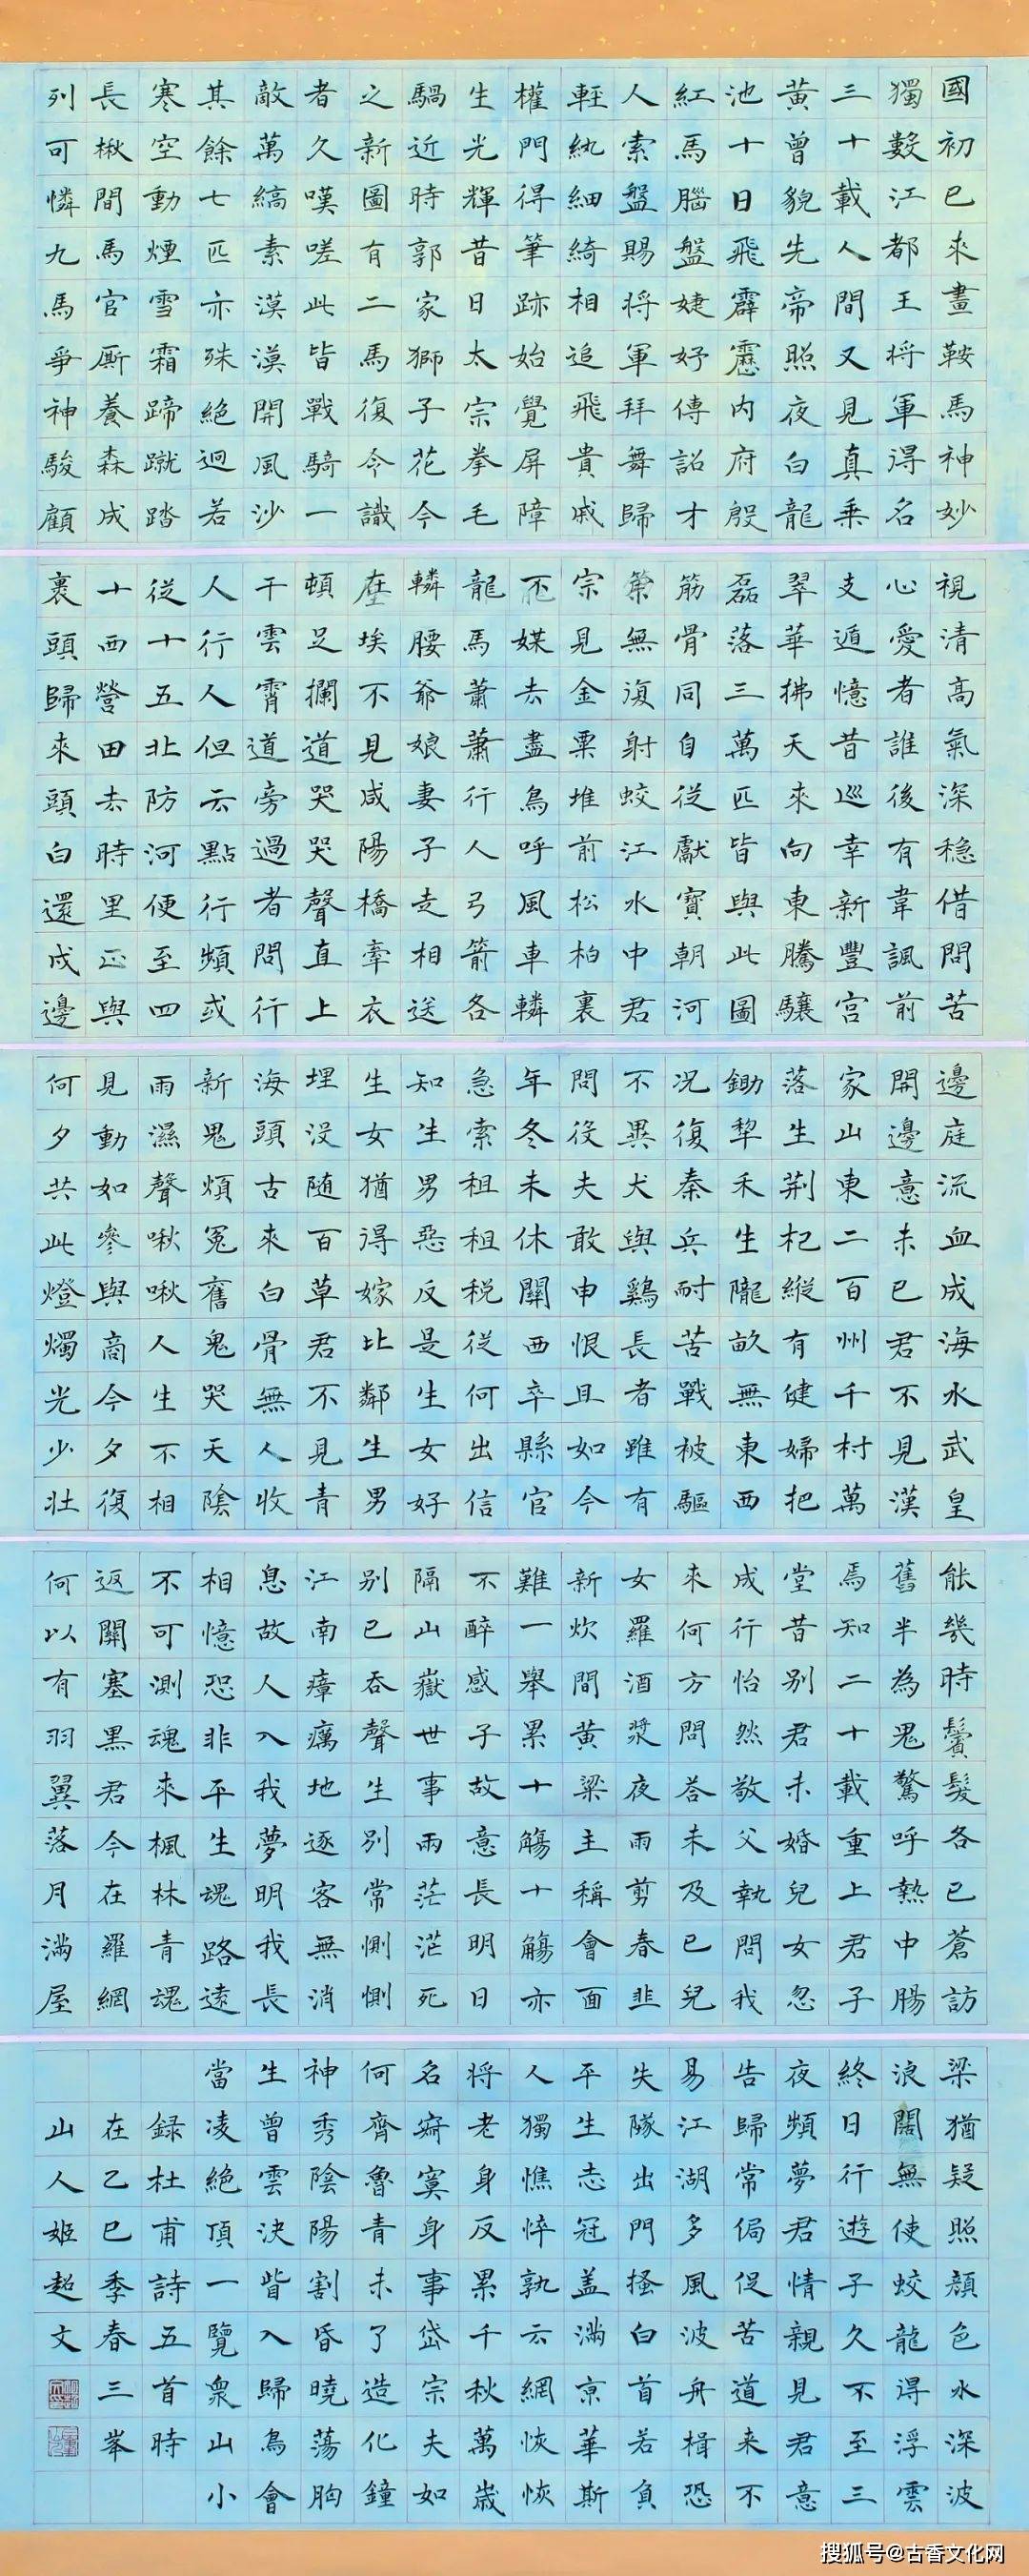 國初已來畫鞍馬神妙
獨數江都王将軍得名
三十載人間又見真乗
黃曾貌先帝照夜白龍
池十日飛霹靂内府殷
紅馬腦盤婕妤傳詔才
人索盤賜将軍拜舞歸
輕紈細綺相追飛貴戚
權門得筆跡始覺屏障
生光輝昔日太宗拳毛
騧近時郭家獅子花今
之新圖有二馬復令識
者久嘆嗟此皆戰騎一
敵萬縞素漠漠開風沙
其餘七匹亦殊絕迥若
寒空動煙雪霜蹄蹴踏
長楸間馬官厮養森成
列可憐九馬爭神駿顧
視清高氣深穩借問苦
心愛者誰後有韋諷前
支遁憶昔巡幸新豐宮
翠華拂天來向東騰驤
磊落三萬匹皆與此圖
筋骨同自從獻寶朝河
無復射蛟江水中君
宗見金粟堆前松柏裏
媒去盡鳥呼風車轔
龍馬蕭蕭行人弓箭各
轔腰爺娘妻子走相送
埃不見咸陽橋牽衣
頓足攔道哭哭聲直上
干雲霄道旁過者問行
人行人但云點行頻或
從十五北防河便至四
十西營田去時里正與
裹頭歸來頭白還戍邊
邊庭流血成海水武皇
開邊意未已君不見漢
家山東二百州千村萬
落生荆杞縱有健婦把
鋤犂禾生隴畝無東西
况復秦兵耐苦戰被驅
不異犬與鷄長者雖有
問役夫敢申恨且如今
年冬未休關西卒縣官
急索租租税從何出信
知生男惡反是生女好
生女猶得嫁比鄰生男
埋没随百草君不見青
海頭古來白骨無人收
新鬼煩冤舊鬼哭天陰
雨濕聲啾啾人生不相
見動如參與商今夕復
何夕共此燈燭光少壯
能幾時鬢髮各已蒼訪
舊半為鬼驚呼熱中腸
焉知二十載重上君子
堂昔别君未婚兒女忽
成行怡然敬父執問我
來何方問答未及已兒
女羅酒漿夜雨剪春韭
新炊間黄粱主稱會面
難一舉累十觴十觴亦
不醉感子故意長明日
隔山嶽世事兩茫茫死
别已吞聲生别常惻惻
江南瘴癘地逐客無消
息故人入我夢明我長
相憶恐非平生魂路遠
不可測魂來楓林青魂
返關塞黑君今在羅網
何以有羽翼落月滿屋
梁猶疑照顔色水深波
浪闊無使蛟龍得浮雲
終日行遊子久不至三
夜頻夢君情親見君意
告歸常侷促苦道来不
易江湖多風波舟楫恐
失隊出門搔白首若負
平生志冠盖滿京華斯
人獨憔悴孰云網恢恢
将老身反累千秋萬歲
名寂寞身事岱宗夫如
何齊魯青未了造化鐘
神秀陰陽割昏曉蕩胸
生曾雲決眥入歸鳥會
當凌絕頂一覽衆山小
録杜甫詩五首時
在乙巳季春三峯
山人姬超文
搜狐号@古香文化网